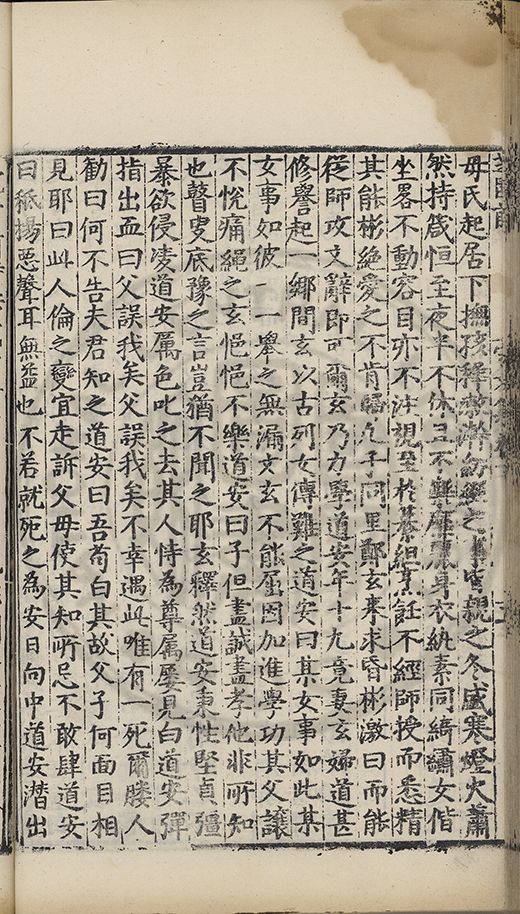 母氏起居下撫孩稺㓗滌紡績之事身親之冬盛寒燈火蕭
然持箴恒至夜半不休且不舞靡麗身衣紈素同綺繡女偕
坐畧不動容目亦不注視至於纂組烹飪不經師授而悉精
其能彬絶愛之不肯歸凡子同里鄭玄来求昏彬激曰而能
從師攻文辭即可爾玄乃力學道安年十九竟妻玄婦道甚
修譽起一鄉間玄以古列女傳難之道安曰某女事如此某
女事如彼一一舉之無漏文玄不能屈因加進學功其父讓
不悅痛繩之玄悒悒不樂道安曰子但盡誠盡孝他非所知
也瞽叟底豫之言豈猶不聞之耶玄釋然道安秉性堅貞彊
暴欲侵淩道安厲色叱之去其人恃為尊属屢見白道安彈
指出血曰父誤我矣父誤我矣不幸遇此唯有一死爾媵人
勸曰何不告夫君知之道安曰吾苟白其故父子何面目相
見耶曰此人倫之變宜走訴父母使其知所忌不敢肆道安
曰秪揚惡聲耳無益也不若就死之為安日向中道安潜出